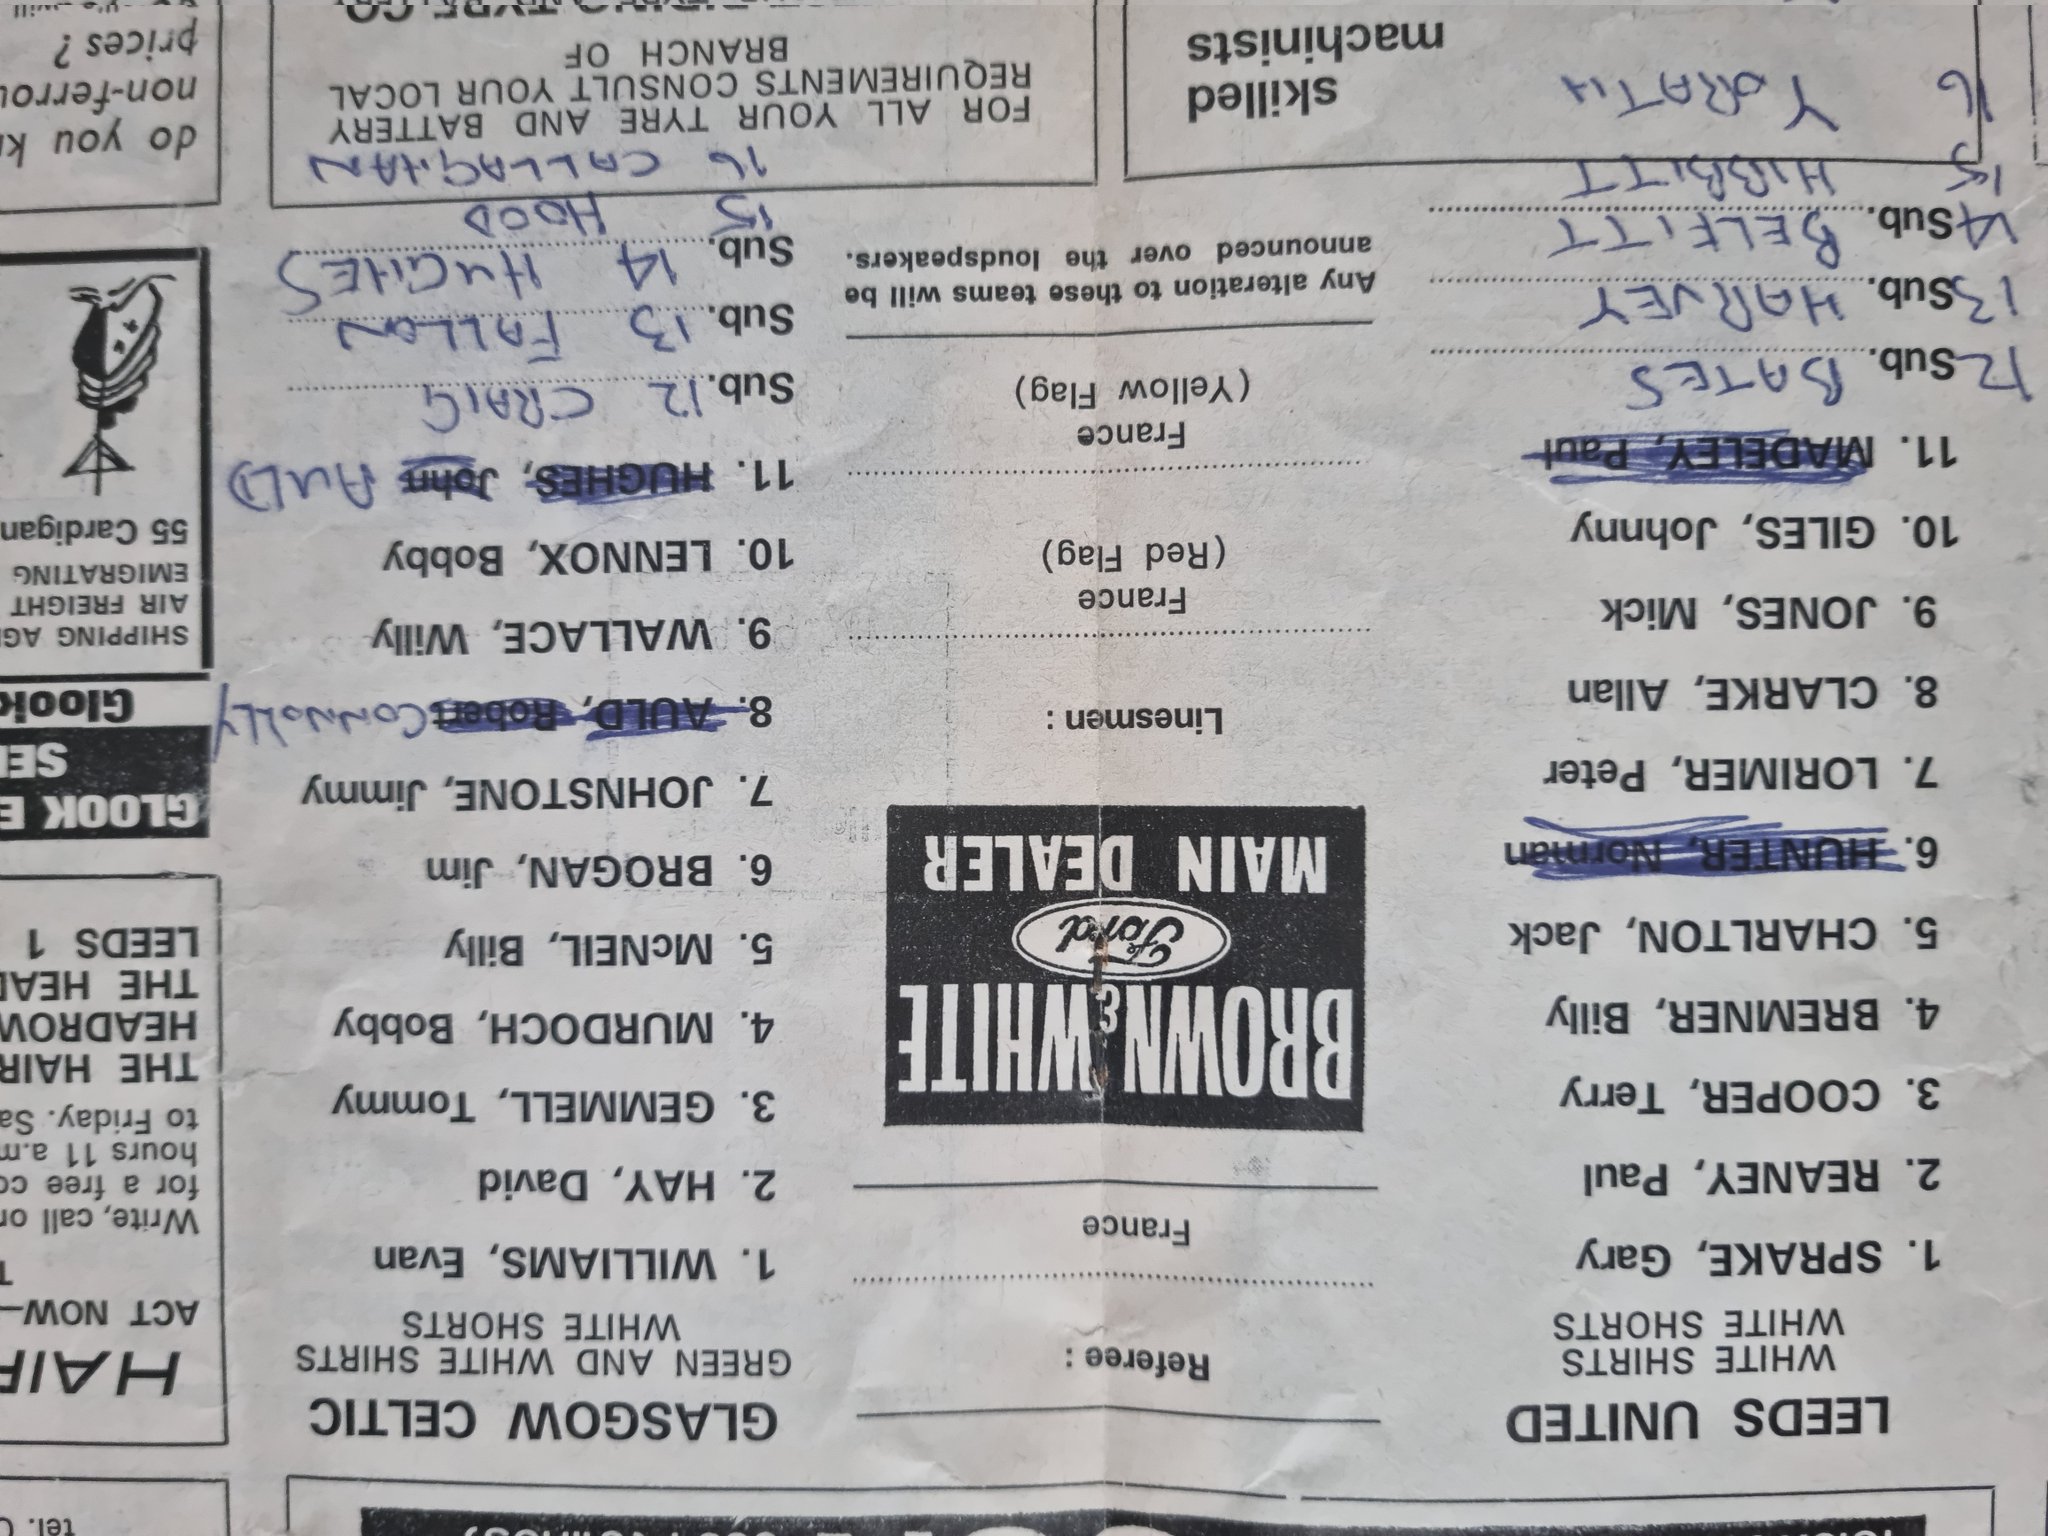 LEEDS UNITED
WHITE SHIRTS
WHITE SHORTS
1. SPRAKE, Gary
2. REANEY, Paul
3. COOPER, Terry
4. BREMNER, Billy
5. CHARLTON, Jack
6. HUNTER, Norman
7. LORIMER, Peter
8. CLARKE, Allan
9. JONES, Mick
10. GILES, Johnny
11. MADELEY, Paul
12 Sub. BATES
13 Sub. HARVEY
14 Sub. BELFITT
15 HIBBITT
16 YORATH
skilled
machinists
Referee :
France
BROWN & WHITE
Ford
MAIN DEALER
Linesmen :
France
(Red Flag)
France
(Yellow Flag)
Any alteration to these teams will be
announced over the loudspeakers.
GLASGOW CELTIC
GREEN AND WHITE SHIRTS
WHITE SHORTS
1. WILLIAMS, Evan
2. HAY, David
3. GEMMELL, Tommy
4. MURDOCH, Bobby
5. McNEIL, Billy
6. BROGAN, Jim
7. JOHNSTONE, Jimmy
8. AULD, Robert CONNOLLY
9. WALLACE, Willy
10. LENNOX, Bobby
11. HUGHES, John AULD
Sub. 12 CRAIG
Sub. 13 FALLON
Sub. 14 HUGHES
15 HOOD
16 CALLAGHAN
FOR ALL YOUR TYRE AND BATTERY
REQUIREMENTS CONSULT YOUR LOCAL
BRANCH OF
tel.
HAIR
ACT NOW—
Write, call or
for a free co
hours 11 a.m
to Friday. Sa
THE HAIR
HEADROW
THE HEAD
LEEDS 1
GLOOK E
SE
Glook
SHIPPING AGE
AIR FREIGHT
EMIGRATING
55 Cardigan
do you k
non-ferrou
prices ?